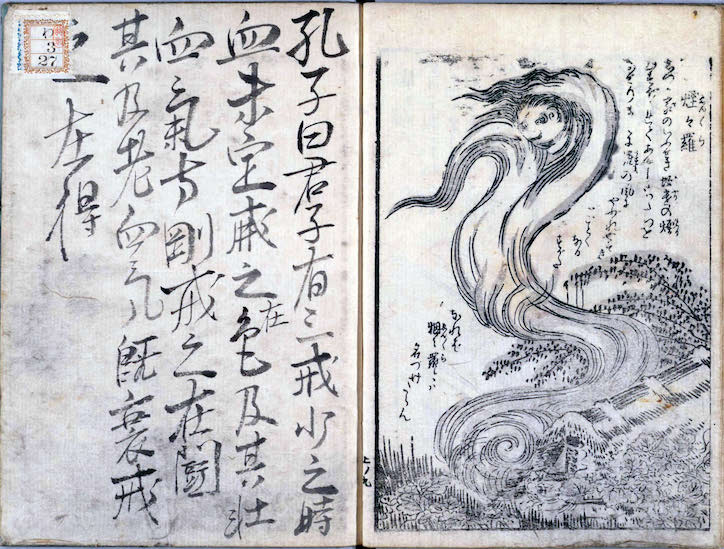 煙々羅
ゑんゑんら
しづが家のいぶせき蚊遣の煙
むすぼゝれてあやしきかたちを
なせりまことに羅の風に
やぶれやすきが
ごとく
なる
すがた
なれば
烟々羅とは
名づけ
たらん
孔子曰君子有三戒少之時
血未定戒之在色及其壮
血氣方剛戒之在闘
其及老血气既衰戒
之在得
わ
3
27